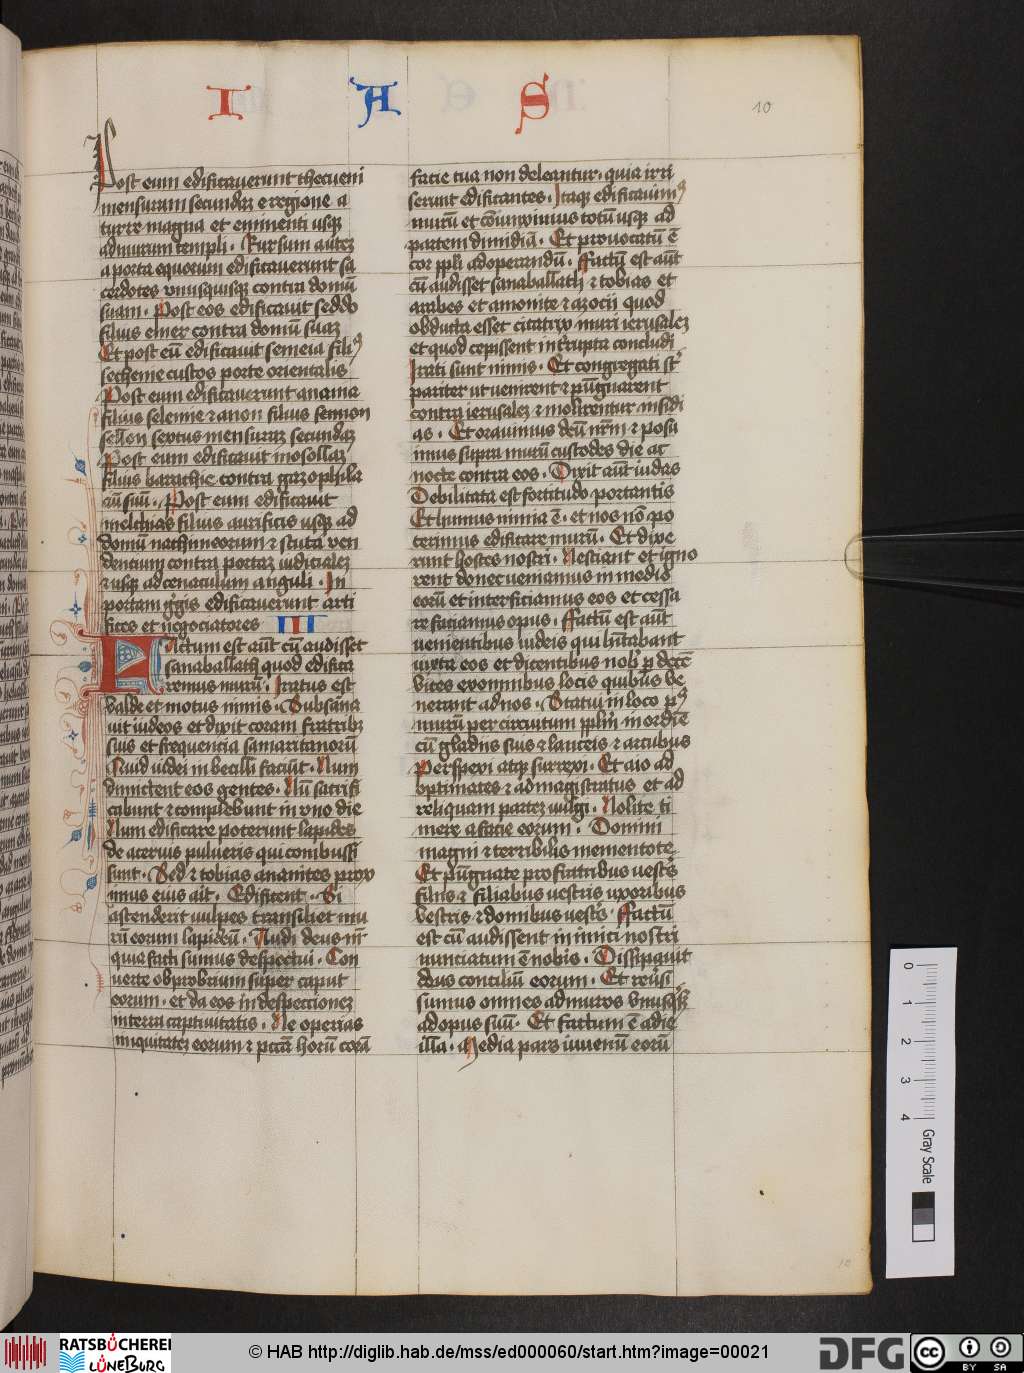 I A S
10
Post eum edificaverunt thecueni
mensuram secundaz e regione a
turre magna et eminenti usq
ad murum templi . Rursum autez
a porta equorum edificaverunt sa
cerdotes vnusquisq contra domū
suam . Post eos edificavit seddo
filius emer contra domū suaz
Et post eū edificavit semeia filiꝰ
secheme custos porte orientalis
Post eum edificaverunt anania
filius selemie ⁊ anon filius
sextus mensuraz secundaz
Post eum edificavit mosollaz
filius barachie contra gazophila
ciū suū . Post eum edificavit
melchias filius aurificis usq ad
domū nathinneorum ⁊ scuta ven
dentium contra portaz iudicialez
⁊ usq ad cenaculum anguli . In
portam gͥgis edificaverunt arti
fices et negociatores III
Factum est aūt cū audisset
sanaballath quod edifica
remus murū . Iratus est
valde et motus nimis . Subsāna
vit iudeos et dixit coram fratribz
suis et frequencia samaritanorū
Quid iudei inbecilli faciūt . Num
dimictent eos gentes . Nū sacrifi
cabunt ⁊ complebunt in vno die
Num edificare poterunt lapides
de acervis pulveris qui combusti
sunt . Sed ⁊ tobias amanites prox
imus eius ait . Edificent . Si
ascenderit vulpes transiliet mu
rū eorum lapideū . Audi deus nr̄
quia facti sumus despectui . Con
verte obprobrium super caput
eorum . et da eos in despeccionez
in terra captivitatis . Ne operias
iniquitatez eorum ⁊ pctā horū corā
facie tua non deleantur . quia irri
serunt edificantes . Itaq edificavimꝰ
murū et cōiunximus totū usq ad
partem dimidiā . Et provocatū ē
cor ppli ad operandū . ffactū est aūt
cū audisset sanaballath ⁊ tobias et
arabes et amonite ⁊ azocii quod
obducta esset citatrix muri ierusalez
et quod cepissent int'rupta concludi
Irati sunt nimis . Et congregati st̄
pariter ut venirent ⁊ pūgnarent
contra ierusalez ⁊ molirentur insidi
as . Et oravimus deū nr̄m ⁊ posu
imus supra murū custodes die ac
nocte contra eos . Dixit aūt iudas
Debilitata est fortitudo portantis
Et humus nimia ē . et nos nō po
terimus edificare murū . Et dixe
runt hostes nostri . Nesciant et igno
rent donec veniamus in medio
eorū et interficiamus eos et cessa
re faciamus opus . ffactū est aūt
venientibus iudeis qui hītabant
iuxta eos et dicentibus nob' p decē
vices ex omnibus locis quibus ve
nerant ad nos . Statui in loco pꝰ
murū per circuitum pplm in ordīe
cū gladiis suis ⁊ lanceis ⁊ arcubus
Perspexi atq surrexi . Et aio ad
optimates ⁊ ad magistratus et ad
reliquam partez vulgi . Nolite ti
mere a facie eorum . Domini
magni ⁊ terribilis mementote
Et pūgnate pro fratribus vest's
filiis ⁊ filiabus vestris uxoribus
vestris ⁊ domibus vest's . ffactū
est cū audissent inimici nostri
nunciatum ē nobis . Dissipavit
deus consiliū eorum . Et reūsi
sumus omnes ad muros vnusqsq
ad opus suū . Et factum ē a die
illa . Media pars iuvenū eorū
0
1
2
3
4
Gray Scale
10
RATSBÜCHEREI
LÜNEBURG
© HAB http://diglib.hab.de/mss/ed000060/start.htm?image=00021
DFG
cc BY SA